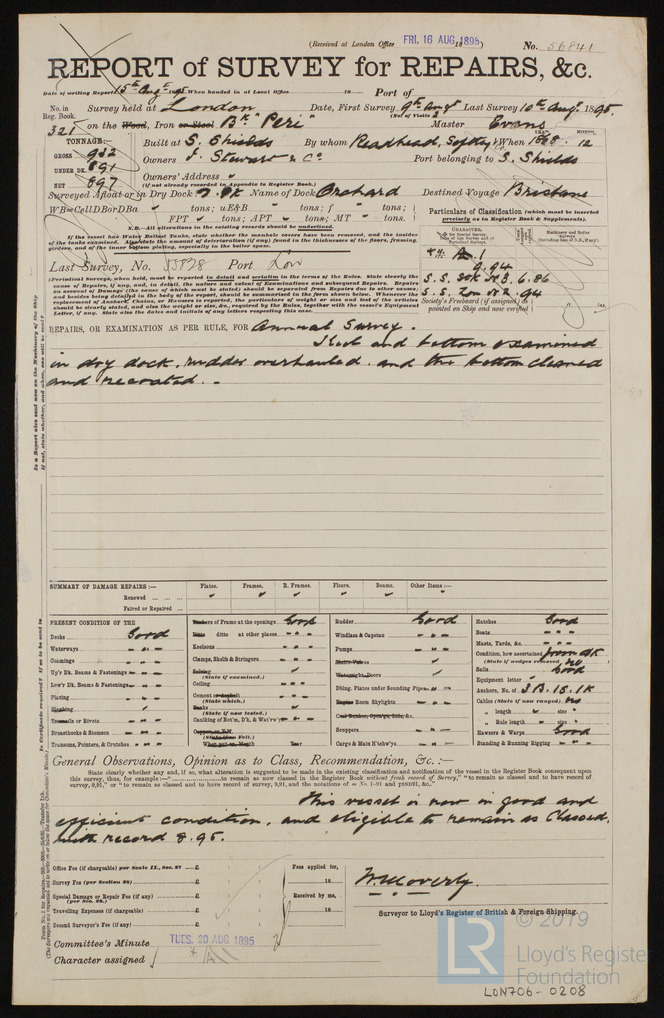 (Received at London Office FRI. 16 AUG 1895)
No. 56841
REPORT of SURVEY for REPAIRS, &c.
Date of writing Report 15th Augt 95 When handed in at Local Office 18 Port of
No. in Reg. Book. Survey held at London Date, First Survey 9th Augt Last Survey 10th Augt 1895
(No. of Visits 2
321 on the Wood, Iron or Steel Bk "Peri" Master Evans
TONNAGE:— Built at S. Shields By whom Readhead, Softley & Co When 1868 12
GROSS 932 Owners J. Stewart & Co. Port belonging to S. Shields
UNDER DK. 891 Owners' Address
NET 897 (if not already recorded in Appendix to Register Book.)
Surveyed Afloat or in Dry Dock Name of Dock Orchard Destined Voyage Brisbane
WB=CellDBorDBa tons; uE&B tons; f tons;
FPT tons; APT tons; MT tons.
Particulars of Classification (which must be inserted precisely as in Register Book & Supplements).
N.B.—All alterations in the existing records should be underlined.
If the vessel has Water Ballast Tanks, state whether the manhole covers have been removed, and the insides
of the tanks examined. Also state the amount of deterioration (if any) found in the thicknesses of the floors, framing,
girders, and of the inner bottom plating, especially in the boiler space.
Last Survey, No. 55728 Port Lon
A 1
9.94
S. S. No 3. 6.86
S. S. Lon No 2. 94
Society's Freeboard (if assigned) as painted on Ship and now verified
(Periodical Surveys, when held, must be reported in detail and seriatim in the terms of the Rules. State clearly the
cause of Repairs, if any, and, in detail, the nature and extent of Examinations and subsequent Repairs. Repairs
on account of Damage (the cause of which must be stated) should be separated from Repairs due to other causes;
and besides being detailed in the body of the report, should be summarised in the form shown below. Whenever the
Letter, if any. State also the dates and initials of any letters respecting this case.)
REPAIRS, OR EXAMINATION AS PER RULE, FOR Annual Survey.
Keel and bottom examined
in dry dock, rudder overhauled and the bottom cleaned
and recoated.
SUMMARY OF DAMAGE REPAIRS:— Plates. Frames. R. Frames. Floors. Beams. Other Items:—
Renewed
Paired or Repaired
PRESENT CONDITION OF THE
Decks Good
Waterways
Coamings
Up'r Dk. Beams & Fastenings
Low'r Dk. Beams & Fastenings
Plating
Planking
Treenails or Rivets
Breasthooks & Stemson
Transoms, Pointers, & Crutches
Timbers of Frame at the openings Good
Ditto ditto at other places
Keelsons
Clamps, Shelfs & Stringers
Salting
(State if examined.)
Ceiling
Cement or Asphalt
(State which.)
Caulking of Bot'm, D'k, & Wat'rw'ys
(State when Fell.)
When put on, Month Year
Rudder Good
Windlass & Capstan
Pumps
Watertight Doors
Dblng. Plates under Sounding Pipes
Engine Room Skylights
Scuppers
Cargo & Main H'tchw'ys
Hatches Good
Boats
Masts, Yards, &c.
Condition, how ascertained from dk
(State if wedges removed) no
Sails Good
Equipment letter
Anchors, No. of 3B. 1S. 1K
Cables (State if now ranged) no
" length size
" Rule length size
Hawsers & Warps Good
Standing & Running Rigging
General Observations, Opinion as to Class, Recommendation, &c.:—
State clearly whether any and, if so, what alteration is suggested to be made in the existing classification and notification of the vessel in the Register Book consequent upon
this survey, thus, for example:—" to remain as now classed in the Register Book without fresh record of Survey," "to remain as classed and to have record of
This vessel is now in good and
efficient condition, and eligible to remain as Classed,
with record 8.95.
Office Fee (if chargeable) per Scale II., Sec. 27 £
Survey Fee (per Section 28) £
Special Damage or Repair Fee (if any) £
(per Sec. 28.)
Travelling Expenses (if chargeable) £
Second Surveyor's Fee (if any) £
Fees applied for, 18
Received by me, 18
W. Moverly.
Surveyor to Lloyd's Register of British & Foreign Shipping.
Committee's Minute TUES. 20 AUG 1895
Character assigned
© 2019
LR
Lloyd's Register
Foundation
LON706-0208